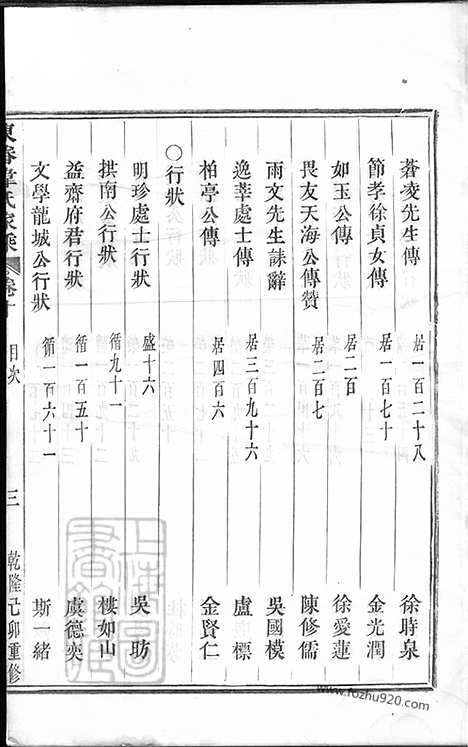 蒼凌先生傳 居一百二十八 徐時泉
節孝徐貞女傳 居一百七十 金光潤
如玉公傳 居二百 徐愛蓮
畏友天海公傳贊 居二百七 陳修儒
雨文先生誄辭 吳國模
逸莘處士傳 居三百九十六 盧標
柏亭公傳 居四百六 金賢仁
〇行狀
明珍處士行狀 盛十六 吳昉
拱南公行狀 循九十一 樓如山
益齋府君行狀 循一百五十 虞德奕
文學龍城公行狀 循一百六十一 斯一緒
東眷韋氏家乘 卷十 目次 三 乾隆己卯重修
www.fozhu920.com